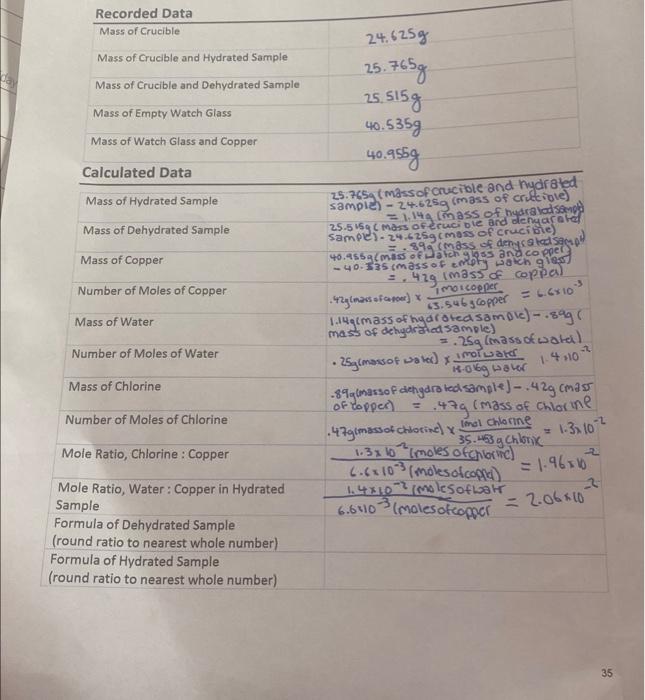 day
Recorded Data
Mass of Crucible 24.625g
Mass of Crucible and Hydrated Sample 25.765g
Mass of Crucible and Dehydrated Sample 25.515g
Mass of Empty Watch Glass 40.535g
Mass of Watch Glass and Copper 40.955g
Calculated Data
Mass of Hydrated Sample
25.765g (mass of crucible and hydrated
sample) - 24.625g (mass of crucible)
= 1.14g (mass of hydrated sample)
Mass of Dehydrated Sample
25.515g (mass of crucible and dehydrated
sample) - 24.625g (mass of crucible)
= .89g (mass of dehydrated sample)
Mass of Copper
40.955g (mass of watch glass and copper)
- 40.535 (mass of empty watch glass)
= .42g (mass of copper)
Number of Moles of Copper
.42g (mass of copper) x 1mol copper / 63.546g copper = 6.6x10^-3
Mass of Water
1.14g (mass of hydrated sample) - .89g (
mass of dehydrated sample)
= .25g (mass of water)
Number of Moles of Water
.25g (mass of water) x 1mol water / 18.016g water 1.4x10^-2
Mass of Chlorine
.89g (mass of dehydrated sample) - .42g (mass
of copper) = .47g (mass of chlorine
Number of Moles of Chlorine
.47g (mass of chlorine) x 1mol chlorine / 35.453g chlorine = 1.3x10^-2
Mole Ratio, Chlorine : Copper
1.3x10^-2 (moles of chlorine) / 6.6x10^-3 (moles of copper) = 1.96x10^-2
Mole Ratio, Water : Copper in Hydrated
Sample
1.4x10^-2 (moles of water / 6.6x10^-3 (moles of copper = 2.06x10^-2
Formula of Dehydrated Sample
(round ratio to nearest whole number)
Formula of Hydrated Sample
(round ratio to nearest whole number)
35